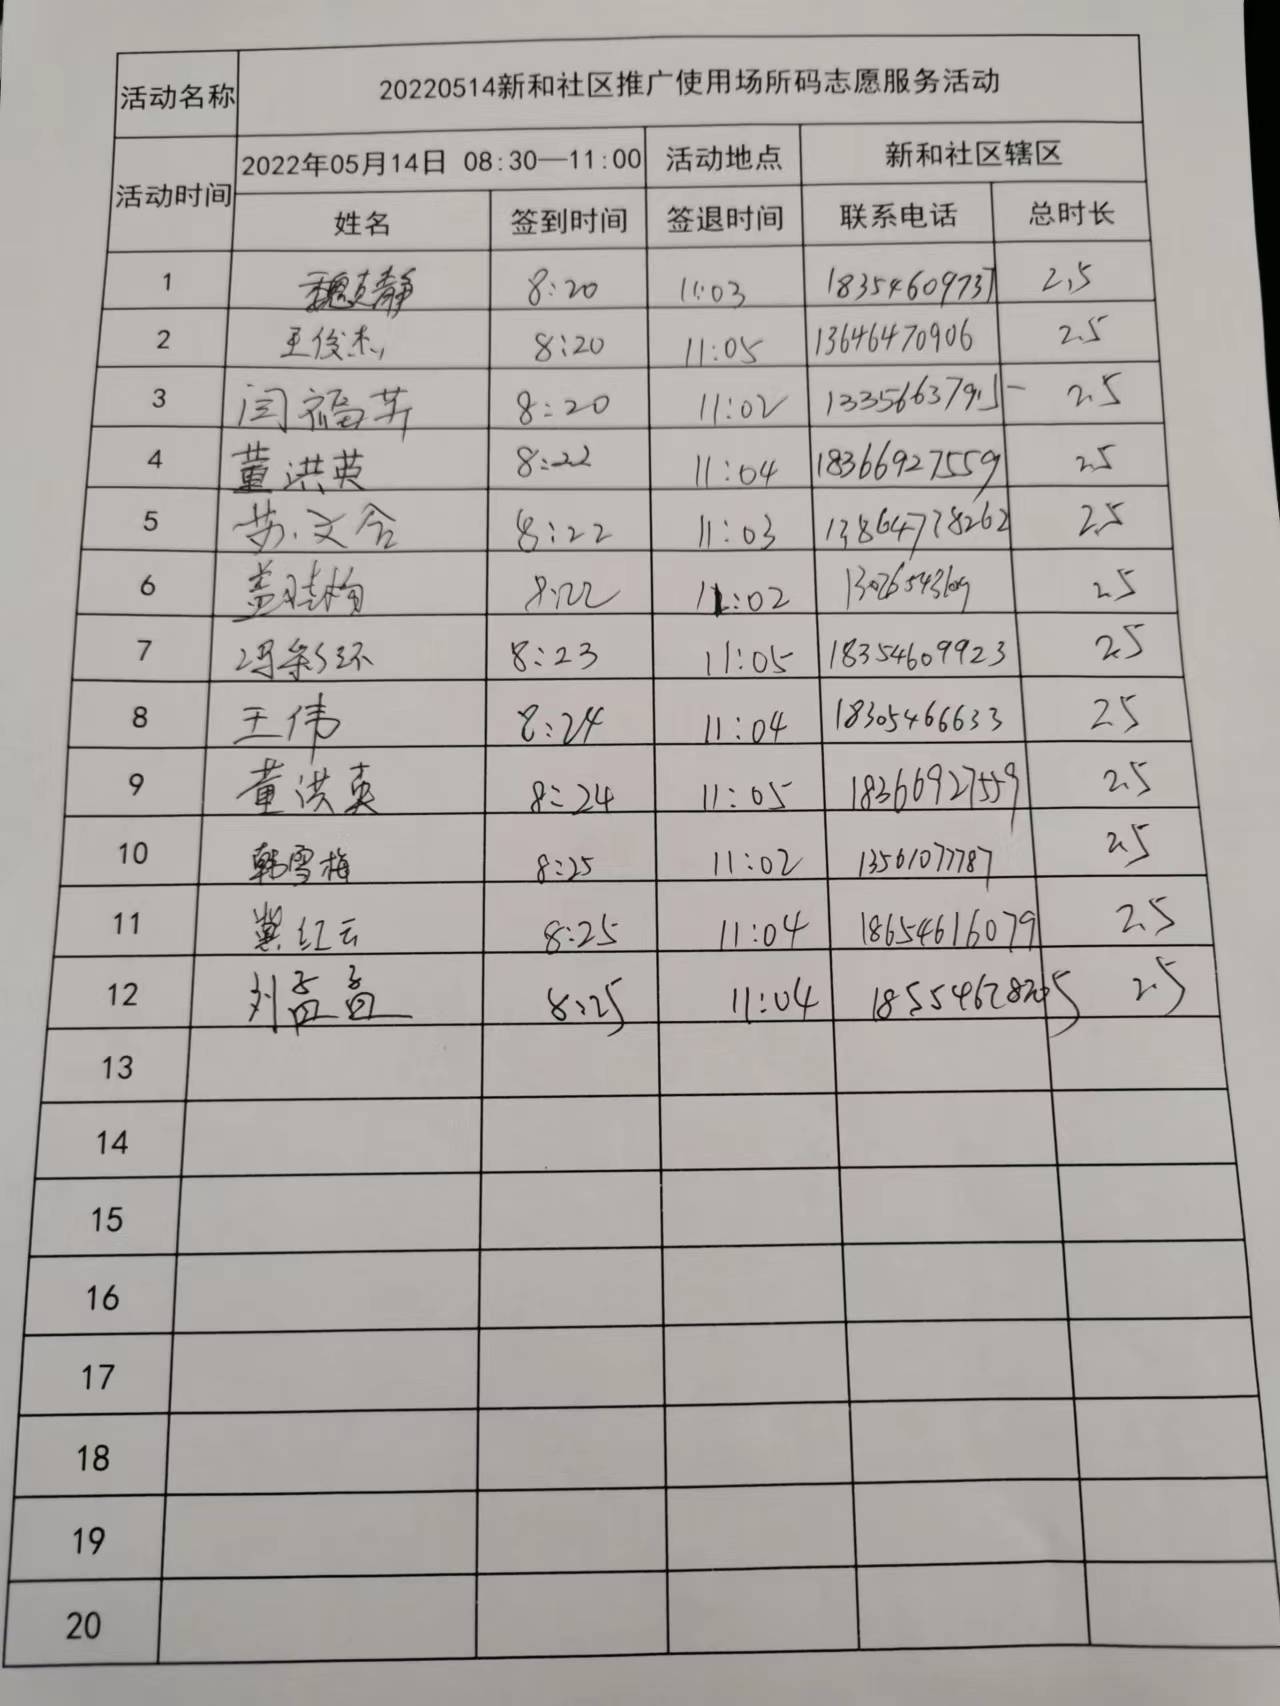 活动名称 20220514新和社区推广使用场所码志愿服务活动
活动时间 2022年05月14日 08:30—11:00 活动地点 新和社区辖区
姓名 签到时间 签退时间 联系电话 总时长
1 8:20 11:03 18354609737 2.5
2 王俊杰 8:20 11:05 13646470906 2.5
3 闫福芹 8:20 11:02 2.5
4 董洪英 8:22 11:04 18366927559 2.5
5 苏文合 8:22 11:03 13864778262 2.5
6 8:22 11:02 2.5
7 冯彩环 8:23 11:05 18354609923 2.5
8 王伟 8:24 11:04 18305466633 2.5
9 董洪英 8:24 11:05 18366927559 2.5
10 韩雪梅 8:25 11:02 13561077787 2.5
11 冀红云 8:25 11:04 18654616079 2.5
12 刘孟孟 8:25 11:04 2.5
13
14
15
16
17
18
19
20